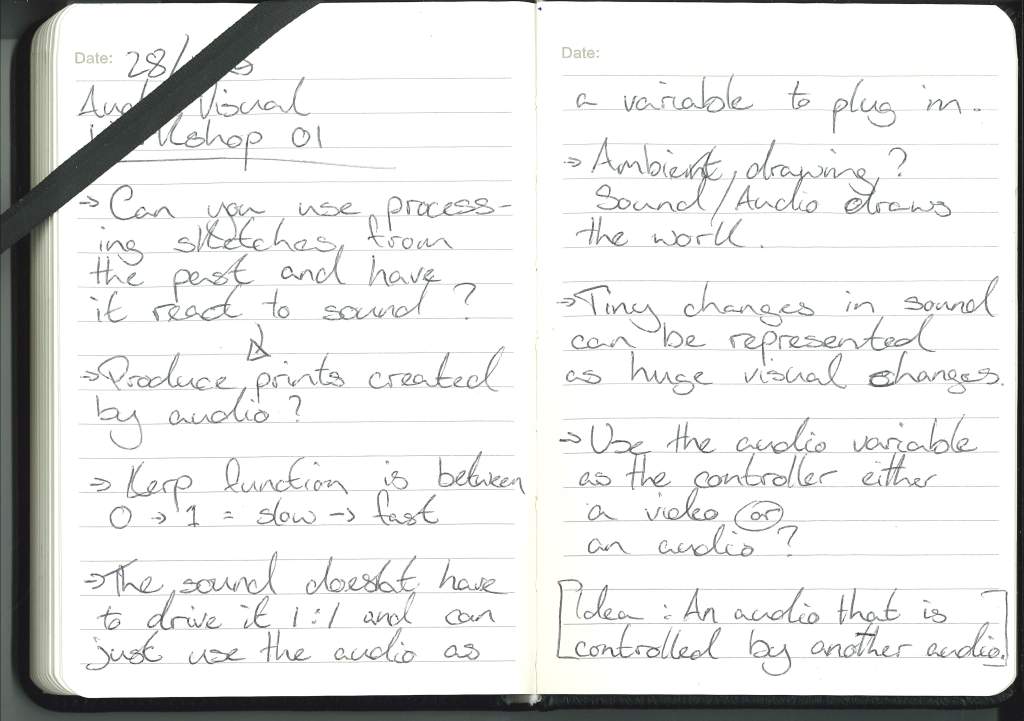 Date: 28/
Audio Visual
Workshop 01
→ Can you use process-
ing sketches from
the past and have
it react to sound?
→ Produce prints created
by audio?
→ Kerp function is between
0 → 1 = slow → fast
→ The sound doesnt have
to drive it 1:1 and can
just use the audio as
Date:
a variable to plug in.
→ Ambient drawing?
Sound/Audio draws
the work.
→ Tiny changes in sound
can be represented
as huge visual changes.
→ Use the audio variable
as the controller either
a video or
an audio?
Idea: An audio that is
controlled by another audio.